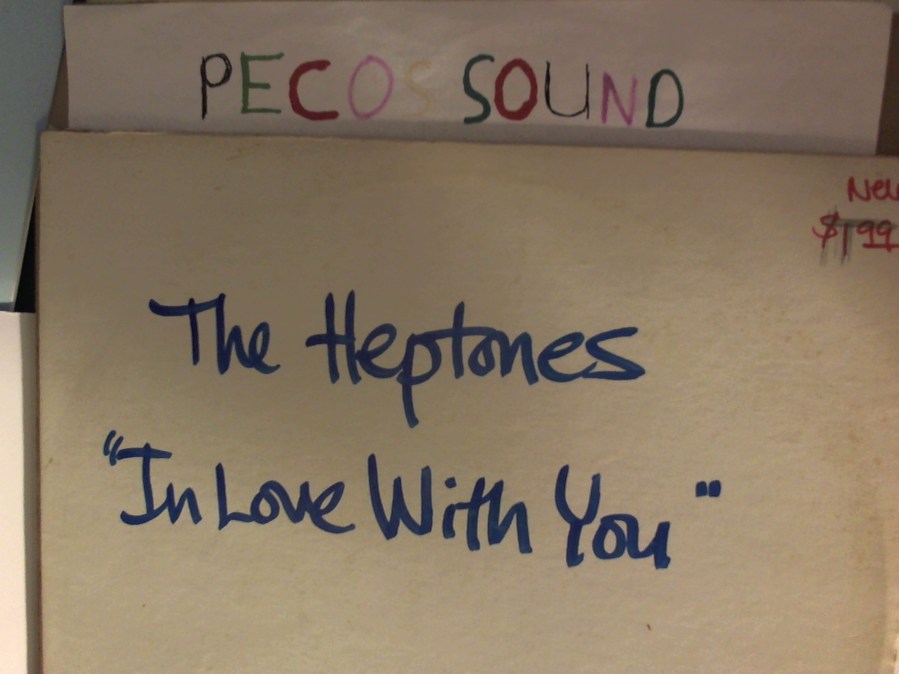 PECOS SOUND
New
$1.99
The Heptones
"In Love With You"